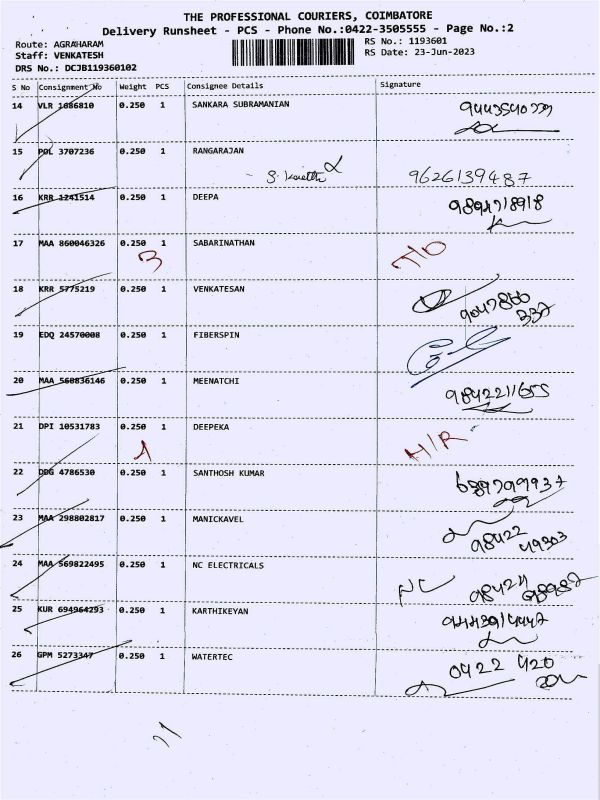 THE PROFESSIONAL COURIERS, COIMBATORE
Delivery Runsheet - PCS - Phone No.:0422-3505555 - Page No.:2
Route: AGRAHARAM RS No.: 1193601
Staff: VENKATESH RS Date: 23-Jun-2023
DRS No.: DCJB119360102
S No Consignment No Weight PCS Consignee Details Signature
14 VLR 1686810 0.250 1 SANKARA SUBRAMANIAN
15 POL 3707236 0.250 1 RANGARAJAN
9626139487
16 KRR 1241514 0.250 1 DEEPA
17 MAA 860046326 0.250 1 SABARINATHAN
3
18 KRR 5775219 0.250 1 VENKATESAN
19 EDQ 24570008 0.250 1 FIBERSPIN
20 MAA 560836146 0.250 1 MEENATCHI
9842211655
21 DPI 10531783 0.250 1 DEEPEKA
H/R
22 DDG 4786530 0.250 1 SANTHOSH KUMAR
23 MAA 298802817 0.250 1 MANICKAVEL
98422
49303
24 MAA 569822495 0.250 1 NC ELECTRICALS
NC
25 KUR 694964293 0.250 1 KARTHIKEYAN
26 GPM 5273347 0.250 1 WATERTEC
0422 420
11